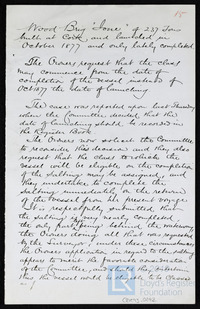 15
Wood Brig "Ione" of 237 Tons
built at Cork, and launched in
October 1877 and only lately completed
The Owners request that the class
may commence from the date of
completion of the vessel instead of
Oct 1877 the date of launching
The case was reported upon last Thursday
when the Committee decided that the
date of launching should be recorded in
the Register Book.
The Owners now solicit the Committee
to reconsider this decision and they also
request that the class to which the
vessel will be eligible on the completion
of the salting may be assigned, and
they undertake to complete the
salting immediately on the return
of the vessel from her present voyage
It is respectfully submitted that
the salting being nearly completed,
the only part being behind the
the Owners doing all that was requested
by the Surveyor, under these circumstances
the Owners application in regard to the salting
appears to merit the favorable consideration
of the Committee, and should they
the vessel would be eligible to be Classed
Lloyd's Register
Foundation